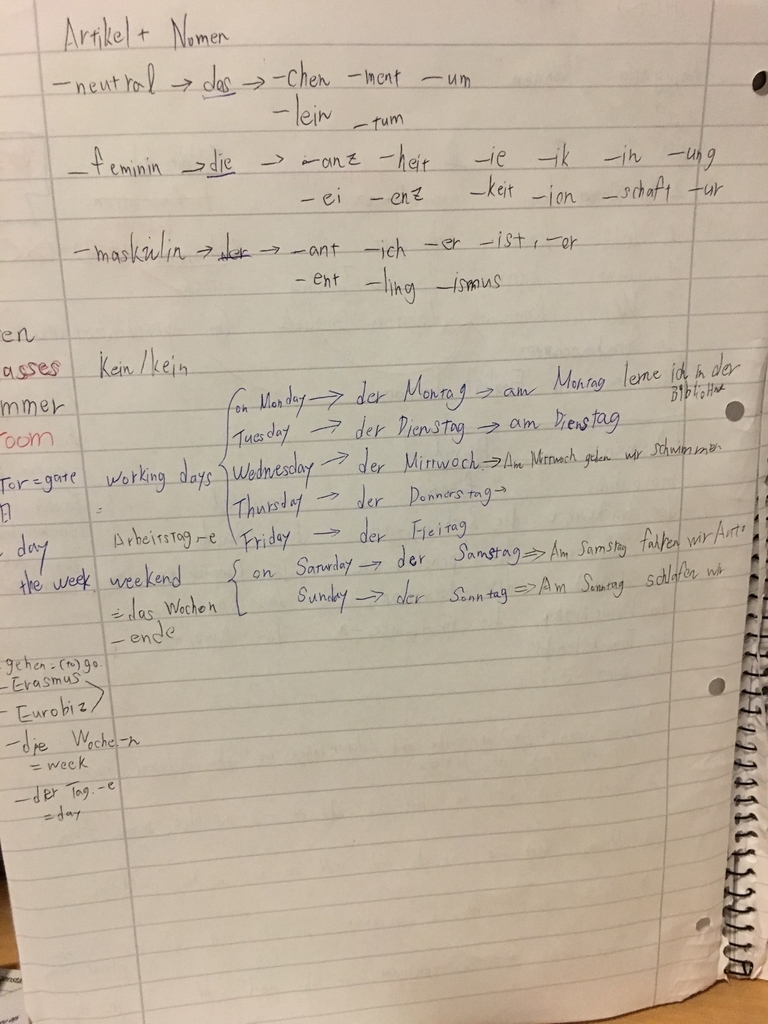 Artikel + Nomen
-neutral → das → -chen -ment -um
-lein -tum
-feminin → die → -anz -heit -ie -ik -in -ung
-ei -enz -keit -ion -schaft -ur
-maskulin → der → -ant -ich -er -ist, -or
-ent -ling -ismus
en
asses Kein/kein
mmer
room
on Monday → der Montag → am Montag lerne ich in der
Bibliothek
Tuesday → der Dienstag → am Dienstag
Tor = gate working days Wednesday → der Mittwoch → Am Mittwoch gehen wir schwimmen
= Thursday → der Donnerstag →
day Arbeitstag -e Friday → der Freitag
the week weekend on Saturday → der Samstag ⇒ Am Samstag fahren wir Auto
= das Wochen Sunday → der Sonntag ⇒ Am Sonntag schlafen wir
-ende
gehen = (to) go
- Erasmus
- Eurobiz
-die Woche -n
= week
-der Tag. -e
= day